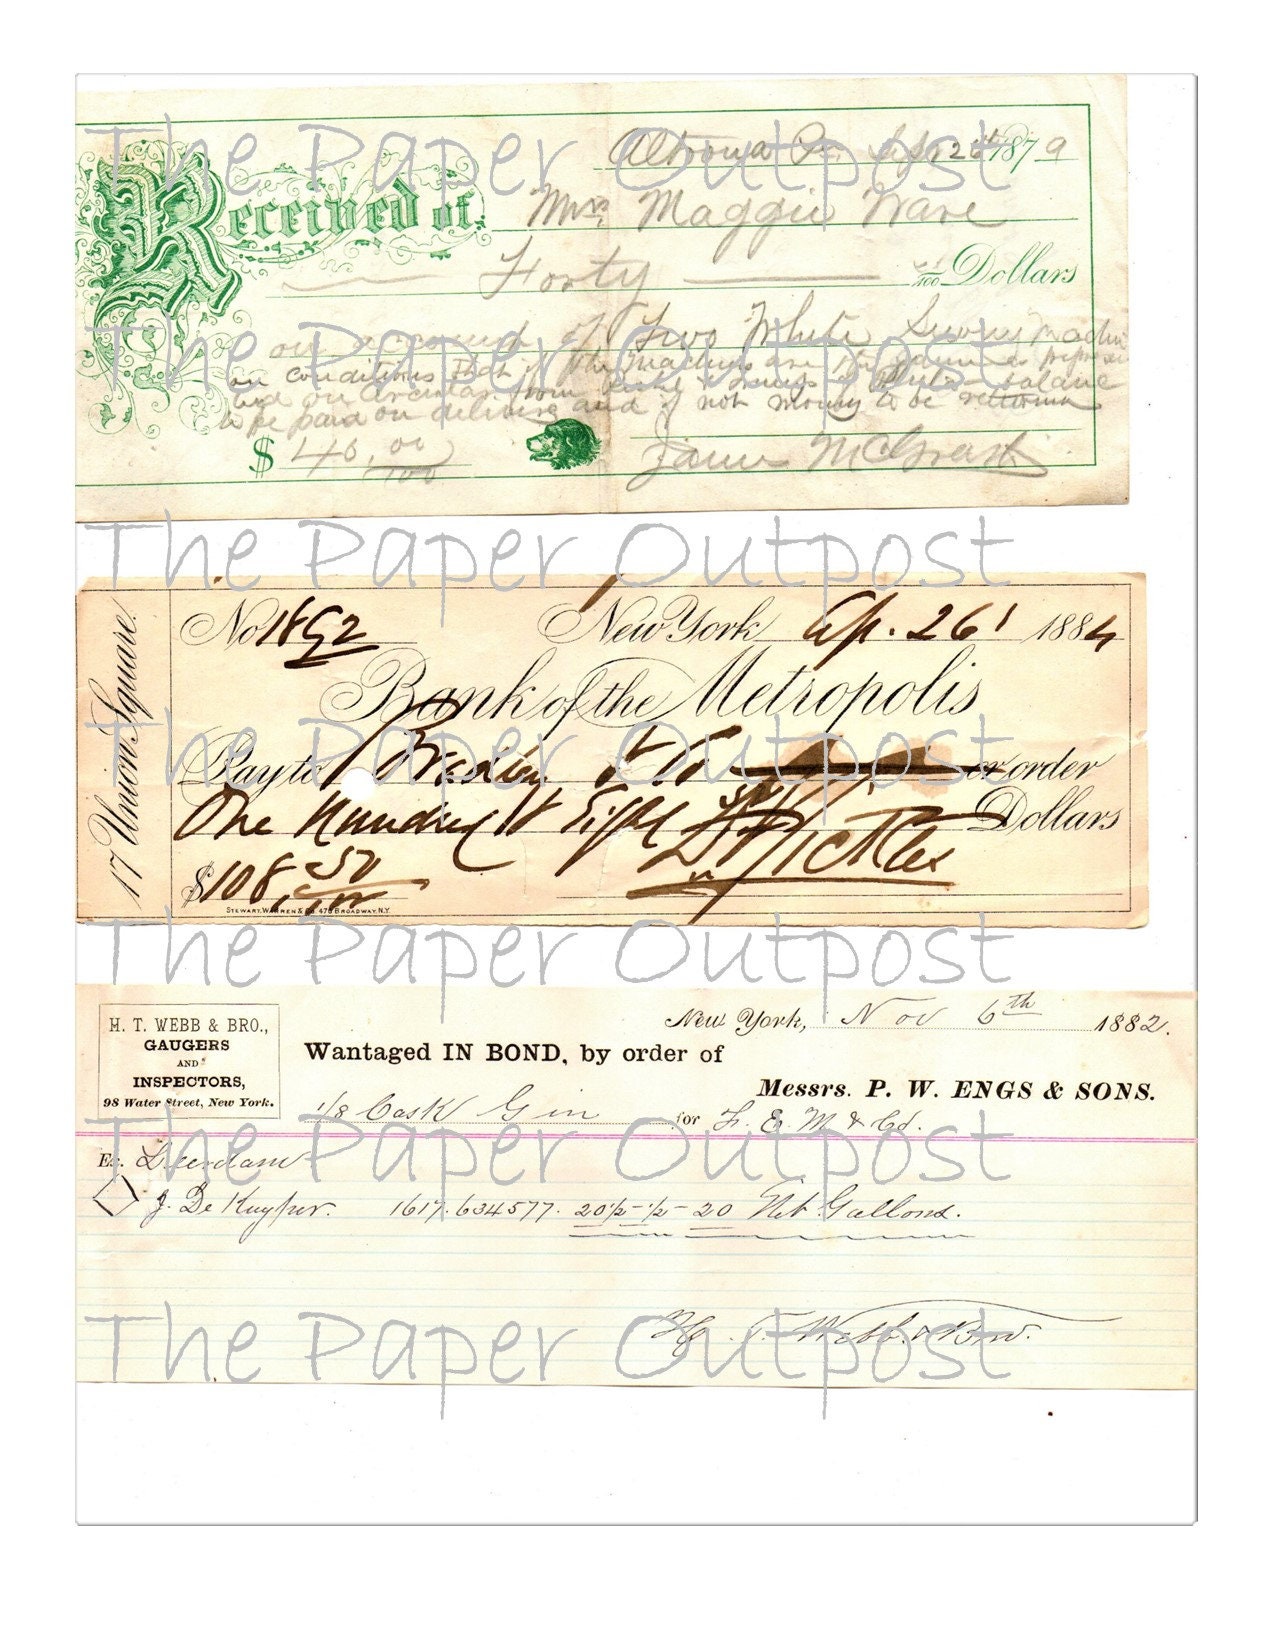 The Paper Outpost
Altoona Pa. Sept 26th 1879
Received of Mrs. Maggie Ware
Forty /100 Dollars
on account of Two White Sewing Machin
on conditions that if the machines are the same as
and on circular from
to be paid on delivery and if not money to be
$ 40,00/100
James McGrath
The Paper Outpost
The Paper Outpost
17 Union Square.
No 1892 New York Ap. 26 1884
Bank of the Metropolis
Pay to or order
One Hundred & Eight Dollars
$108 50/100
STEWART, WARREN & CO. 47 BROADWAY, N.Y.
The Paper Outpost
The Paper Outpost
H. T. WEBB & BRO.,
GAUGERS
AND
INSPECTORS,
98 Water Street, New York.
New York, Nov 6th 1882.
Wantaged IN BOND, by order of
Messrs. P. W. ENGS & SONS.
1/8 Cask Gin for F. E. M & Co.
The Paper Outpost
Ex. Leerdam
J. De Kuyper. 1617. 634577. 20½ - ½ - 20 Net Gallons.
H. T. Webb & Bro.
The Paper Outpost